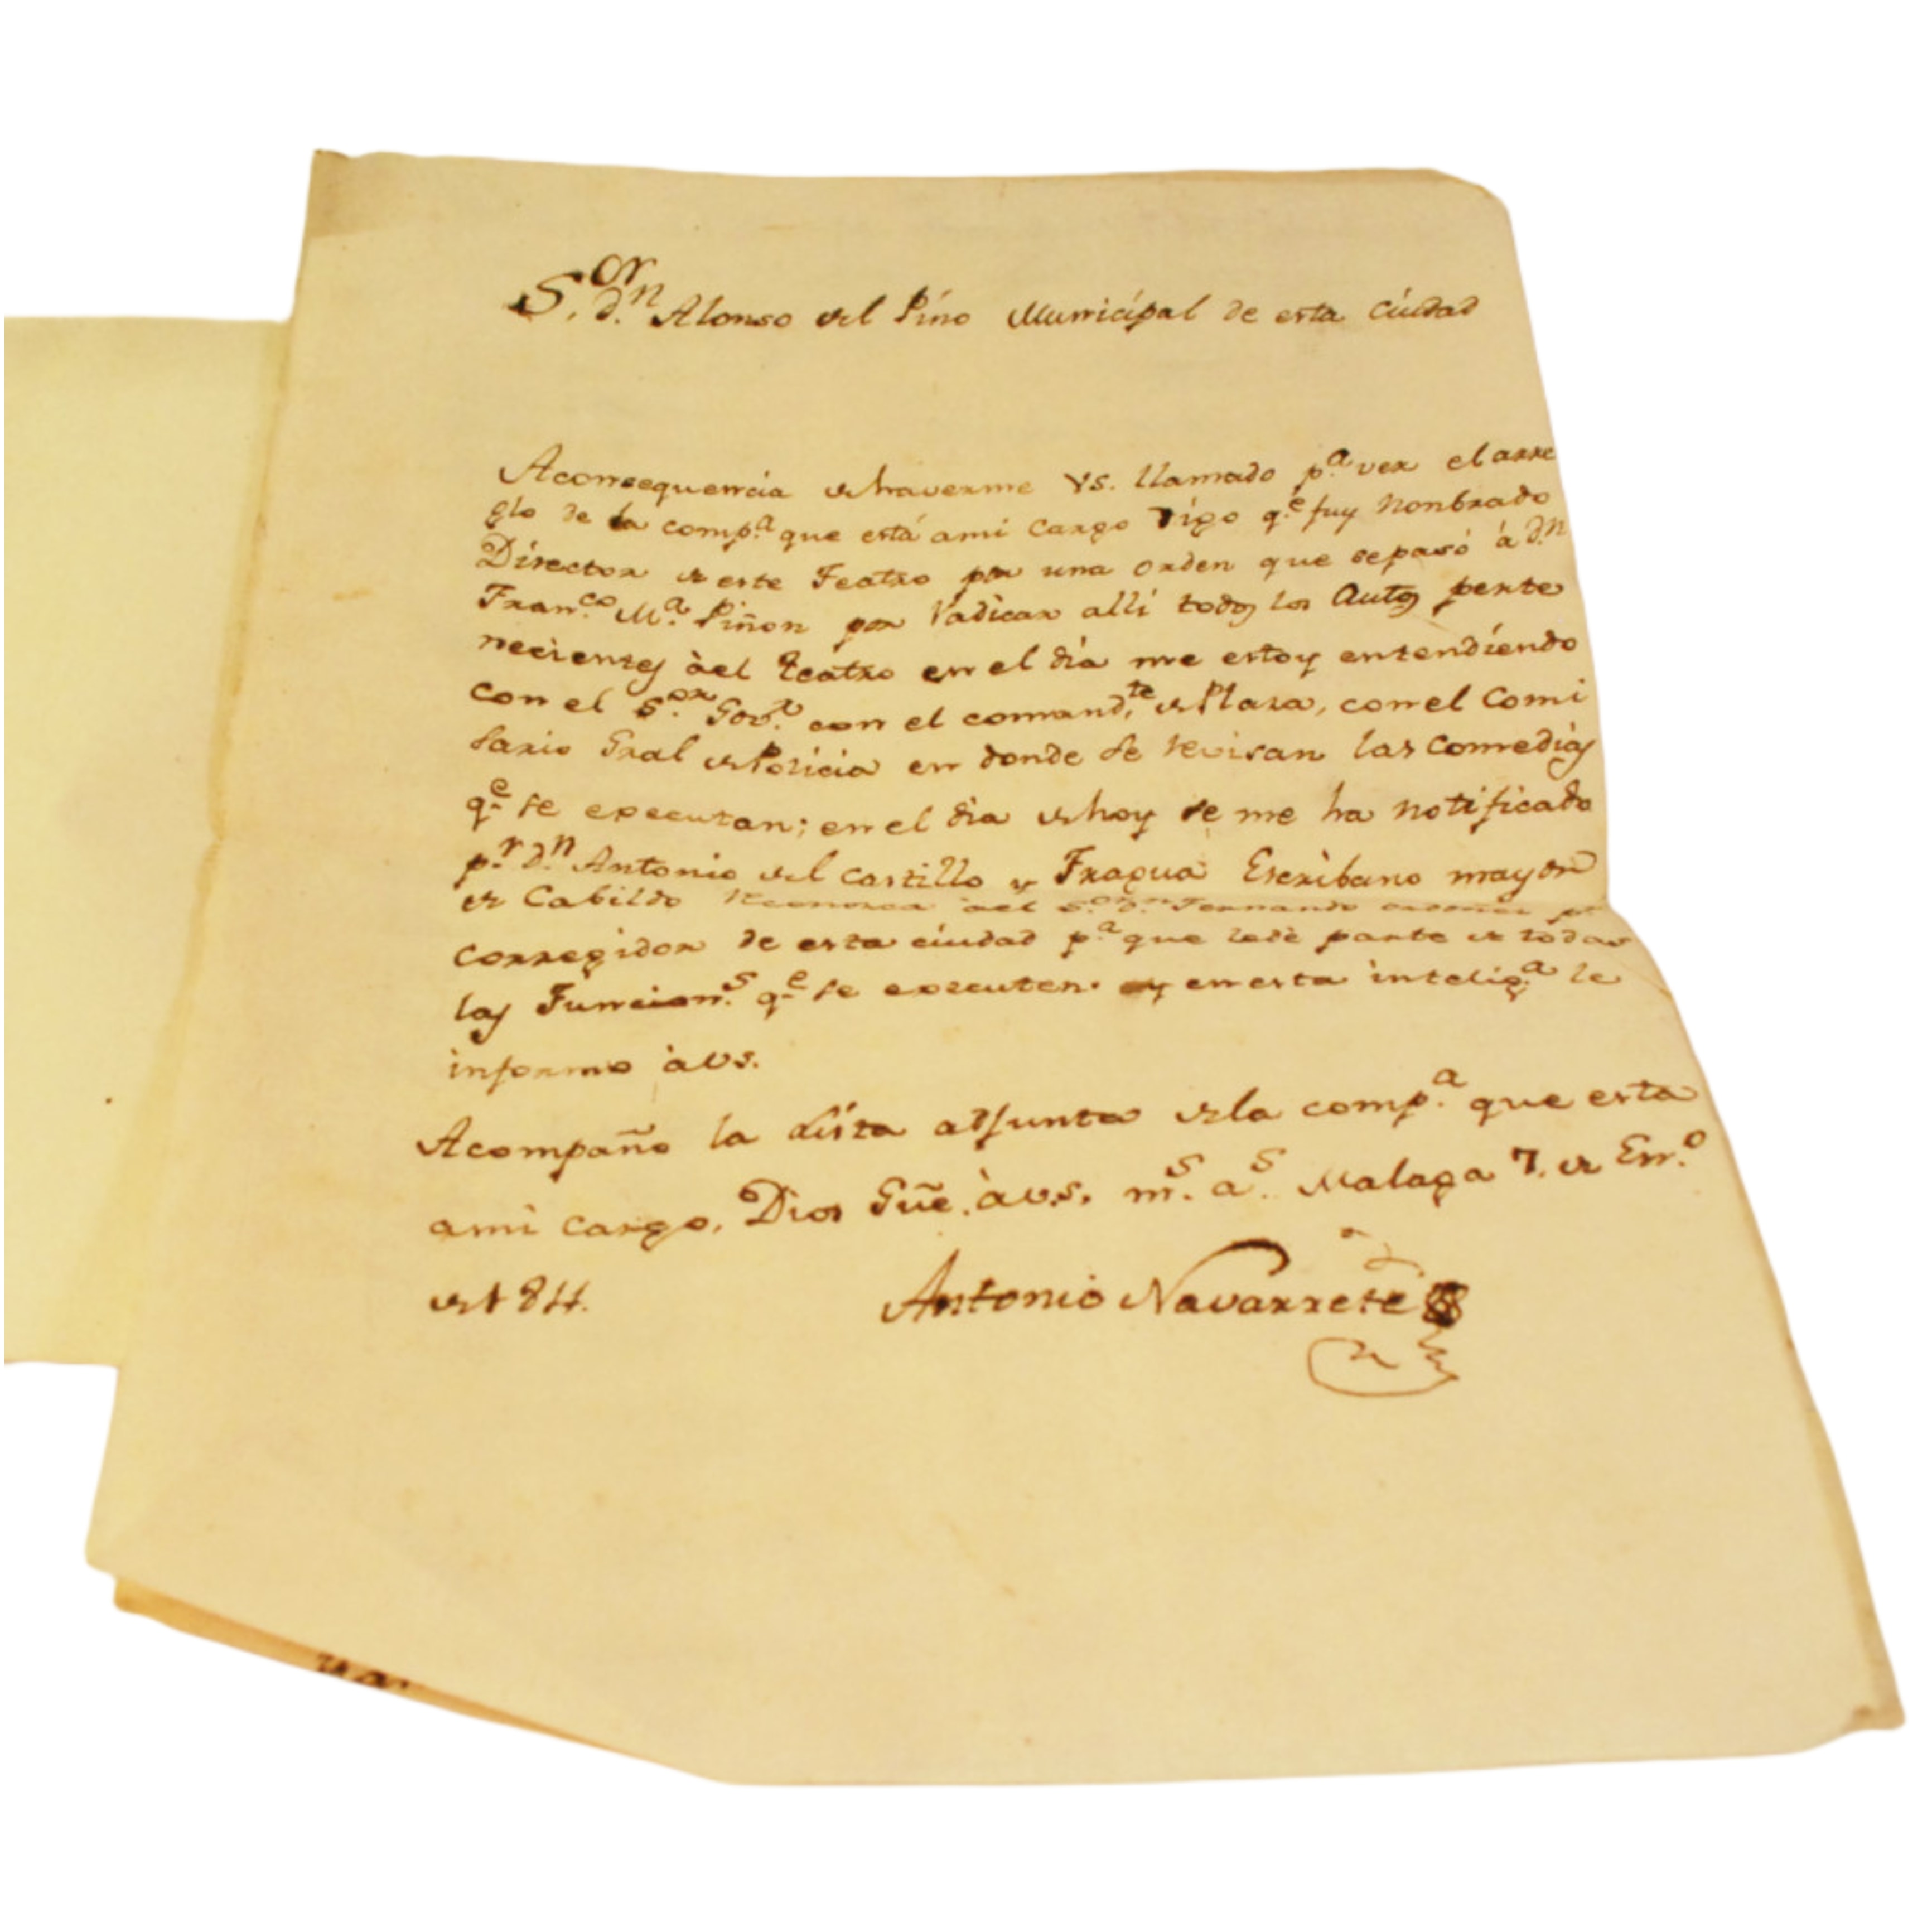 S.or d.n Alonso del Pino Municipal de esta Ciudad
Aconsequencia de haverme VS. llamado p.a ver el arre
glo de la comp.a que está ami Cargo Digo q.e fuy Nonbrado
Director de este Teatro por una orden que sepasó á d.n
Fran.co M.a Piñon por Radicar alli todos los Autos perte
necientes àel Teatro en el dia me estoy entendiendo
con el S.or Gov.r con el comand.te de Plaza, con el Comi
sario Gral de Policia en donde se revisan las Comedias
q.e se executan; en el dia de hoy se me ha notificado
p.r d.n Antonio del Castillo y Fragua Escribano mayor
de Cabildo ael S.or d.n Fernando
Corregidor de esta ciudad p.a que ledè parte de todas
las Funcion.s q.e se executen. y enesta intelig.a le
informo àvs.
Acompaño la lista adjunta dela comp.a que esta
ami cargo, Dios Gũe. àv.s. m.s a.s Malaga 7. de En.o
de 1811. Antonio Navarrete